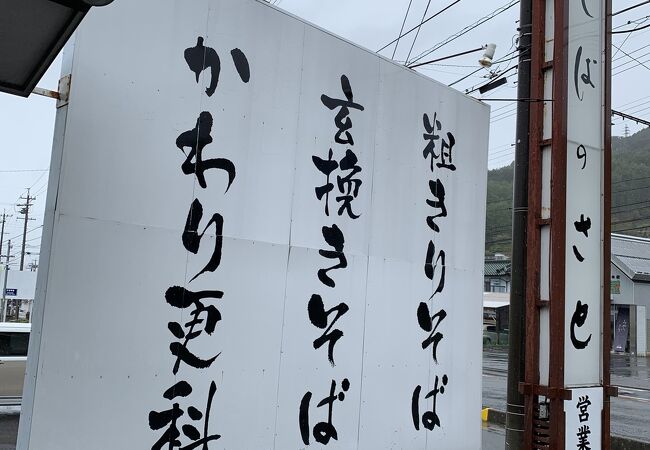 そばのさと
営業
粗きりそば
玄挽きそば
かわり更科